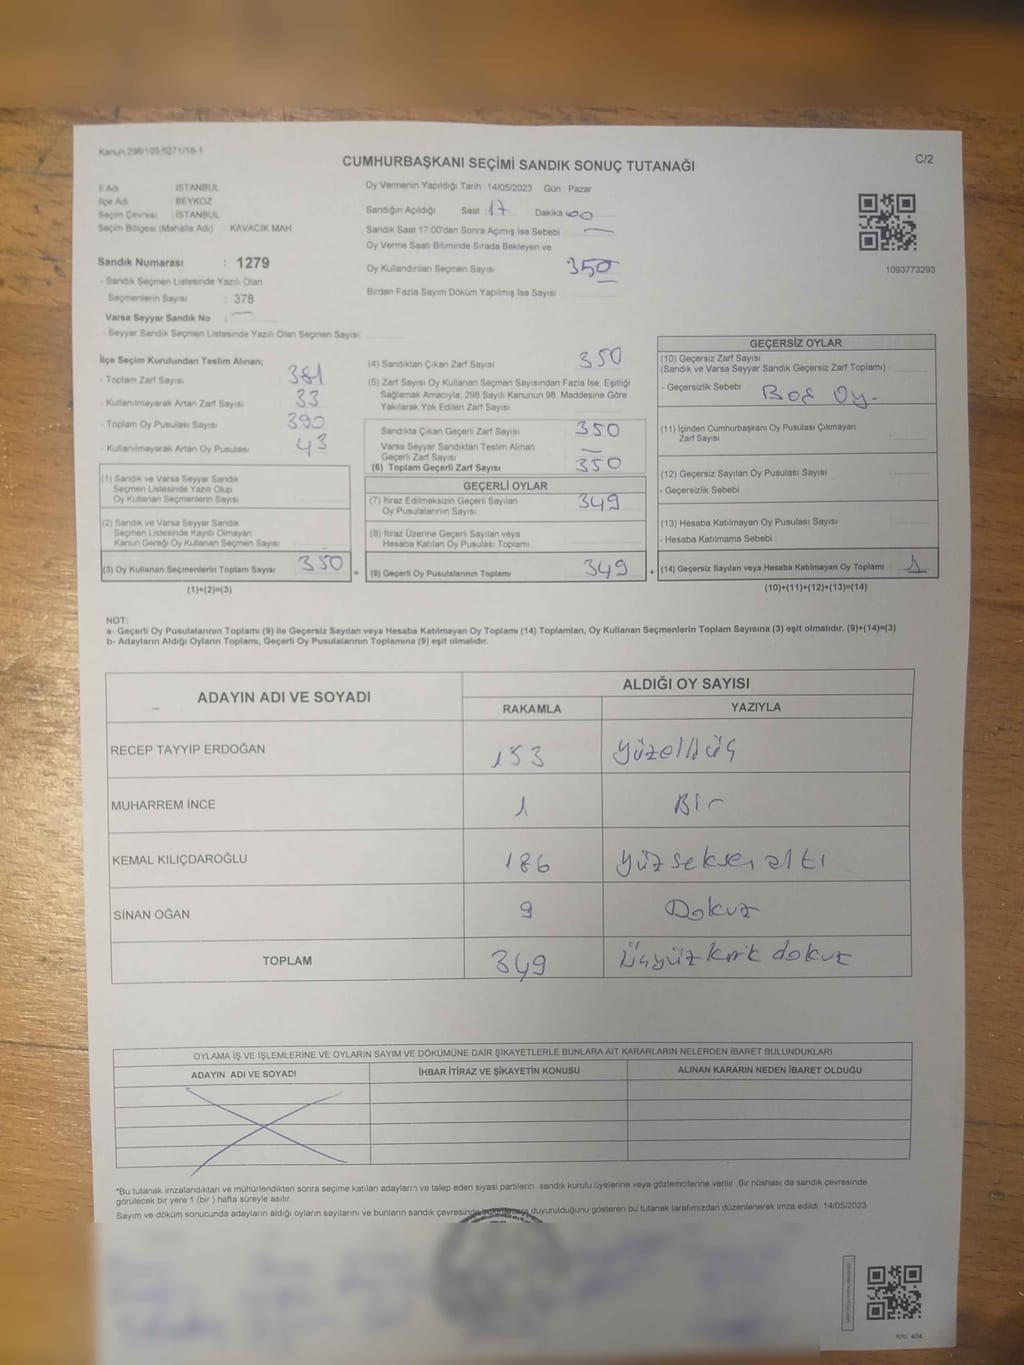 Kanun.298/105,6271/18-1
C/2
CUMHURBAŞKANI SEÇİMİ SANDIK SONUÇ TUTANAĞI
İl Adı : İSTANBUL
İlçe Adı : BEYKOZ
Seçim Çevresi : İSTANBUL
Seçim Bölgesi (Mahalle Adı) KAVACIK MAH.
Sandık Numarası : 1279
- Sandık Seçmen Listesinde Yazılı Olan
Seçmenlerin Sayısı : 378
Varsa Seyyar Sandık No :
- Seyyar Sandık Seçmen Listesinde Yazılı Olan Seçmen Sayısı:
Oy Vermenin Yapıldığı Tarih 14/05/2023 Gün : Pazar
Sandığın Açıldığı Saat : 17 Dakika 00
Sandık Saat 17:00'den Sonra Açımış İse Sebebi
Oy Verme Saati Bitiminde Sırada Bekleyen ve
Oy Kullandırılan Seçmen Sayısı 350
Birden Fazla Sayım Döküm Yapılmış İse Sayısı
1093773293
İlçe Seçim Kurulundan Teslim Alınan;
- Toplam Zarf Sayısı 381
- Kullanılmayarak Artan Zarf Sayısı 33
- Toplam Oy Pusulası Sayısı 390
- Kullanılmayarak Artan Oy Pusulası 43
(1) Sandık ve Varsa Seyyar Sandık
Seçmen Listesinde Yazılı Olup
Oy Kullanan Seçmenlerin Sayısı
(2) Sandık ve Varsa Seyyar Sandık
Seçmen Listesinde Kayıtlı Olmayan
Kanun Gereği Oy Kullanan Seçmen Sayısı
(3) Oy Kullanan Seçmenlerin Toplam Sayısı 350
(1)+(2)=(3)
(4) Sandıktan Çıkan Zarf Sayısı 350
(5) Zarf Sayısı Oy Kullanan Seçmen Sayısından Fazla İse, Eşitliği
Sağlamak Amacıyla, 298 Sayılı Kanunun 98. Maddesine Göre
Yakılarak Yok Edilen Zarf Sayısı
Sandıkta Çıkan Geçerli Zarf Sayısı 350
Varsa Seyyar Sandıktan Teslim Alınan
Geçerli Zarf Sayısı
(6) Toplam Geçerli Zarf Sayısı 350
GEÇERLİ OYLAR
(7) İtiraz Edilmeksizin Geçerli Sayılan
Oy Pusulalarının Sayısı 349
(8) İtiraz Üzerine Geçerli Sayılan veya
Hesaba Katılan Oy Pusulası Toplamı
= (9) Geçerli Oy Pusulalarının Toplamı 349
GEÇERSİZ OYLAR
(10) Geçersiz Zarf Sayısı
(Sandık ve Varsa Seyyar Sandık Geçersiz Zarf Toplamı)
- Geçersizlik Sebebi Boş Oy.
(11) İçinden Cumhurbaşkanı Oy Pusulası Çıkmayan
Zarf Sayısı
(12) Geçersiz Sayılan Oy Pusulası Sayısı
- Geçersizlik Sebebi
(13) Hesaba Katılmayan Oy Pusulası Sayısı
- Hesaba Katılmama Sebebi
+ (14) Geçersiz Sayılan veya Hesaba Katılmayan Oy Toplamı 1
(10)+(11)+(12)+(13)=(14)
NOT:
a- Geçerli Oy Pusulalarının Toplamı (9) ile Geçersiz Sayılan veya Hesaba Katılmayan Oy Toplamı (14) Toplamları, Oy Kullanan Seçmenlerin Toplam Sayısına (3) eşit olmalıdır. (9)+(14)=(3)
b- Adayların Aldığı Oyların Toplamı, Geçerli Oy Pusulalarının Toplamına (9) eşit olmalıdır.
ADAYIN ADI VE SOYADI
ALDIĞI OY SAYISI
RAKAMLA YAZIYLA
RECEP TAYYİP ERDOĞAN 153 Yüzelliüç
MUHARREM İNCE 1 Bir
KEMAL KILIÇDAROĞLU 186 Yüz seksen altı
SİNAN OĞAN 9 Dokuz
TOPLAM 349 Üçyüz kırk dokuz
OYLAMA İŞ VE İŞLEMLERİNE VE OYLARIN SAYIM VE DÖKÜMÜNE DAİR ŞİKAYETLERLE BUNLARA AİT KARARLARIN NELERDEN İBARET BULUNDUKLARI
ADAYIN ADI VE SOYADI İHBAR İTİRAZ VE ŞİKAYETİN KONUSU ALINAN KARARIN NEDEN İBARET OLDUĞU
*Bu tutanak imzalandıktan ve mühürlendikten sonra seçime katılan adayların ve talep eden siyasi partilerin sandık kurulu üyelerine veya gözlemcilerine verilir. Bir nüshası da sandık çevresinde
görülecek bir yere 1 (bir ) hafta süreyle asılır.
Sayım ve döküm sonucunda adayların aldığı oyların sayılarını ve bunların sandık çevresinde duyurulduğunu gösteren bu tutanak tarafımızdan düzenlenerek imza edildi. 14/05/2023